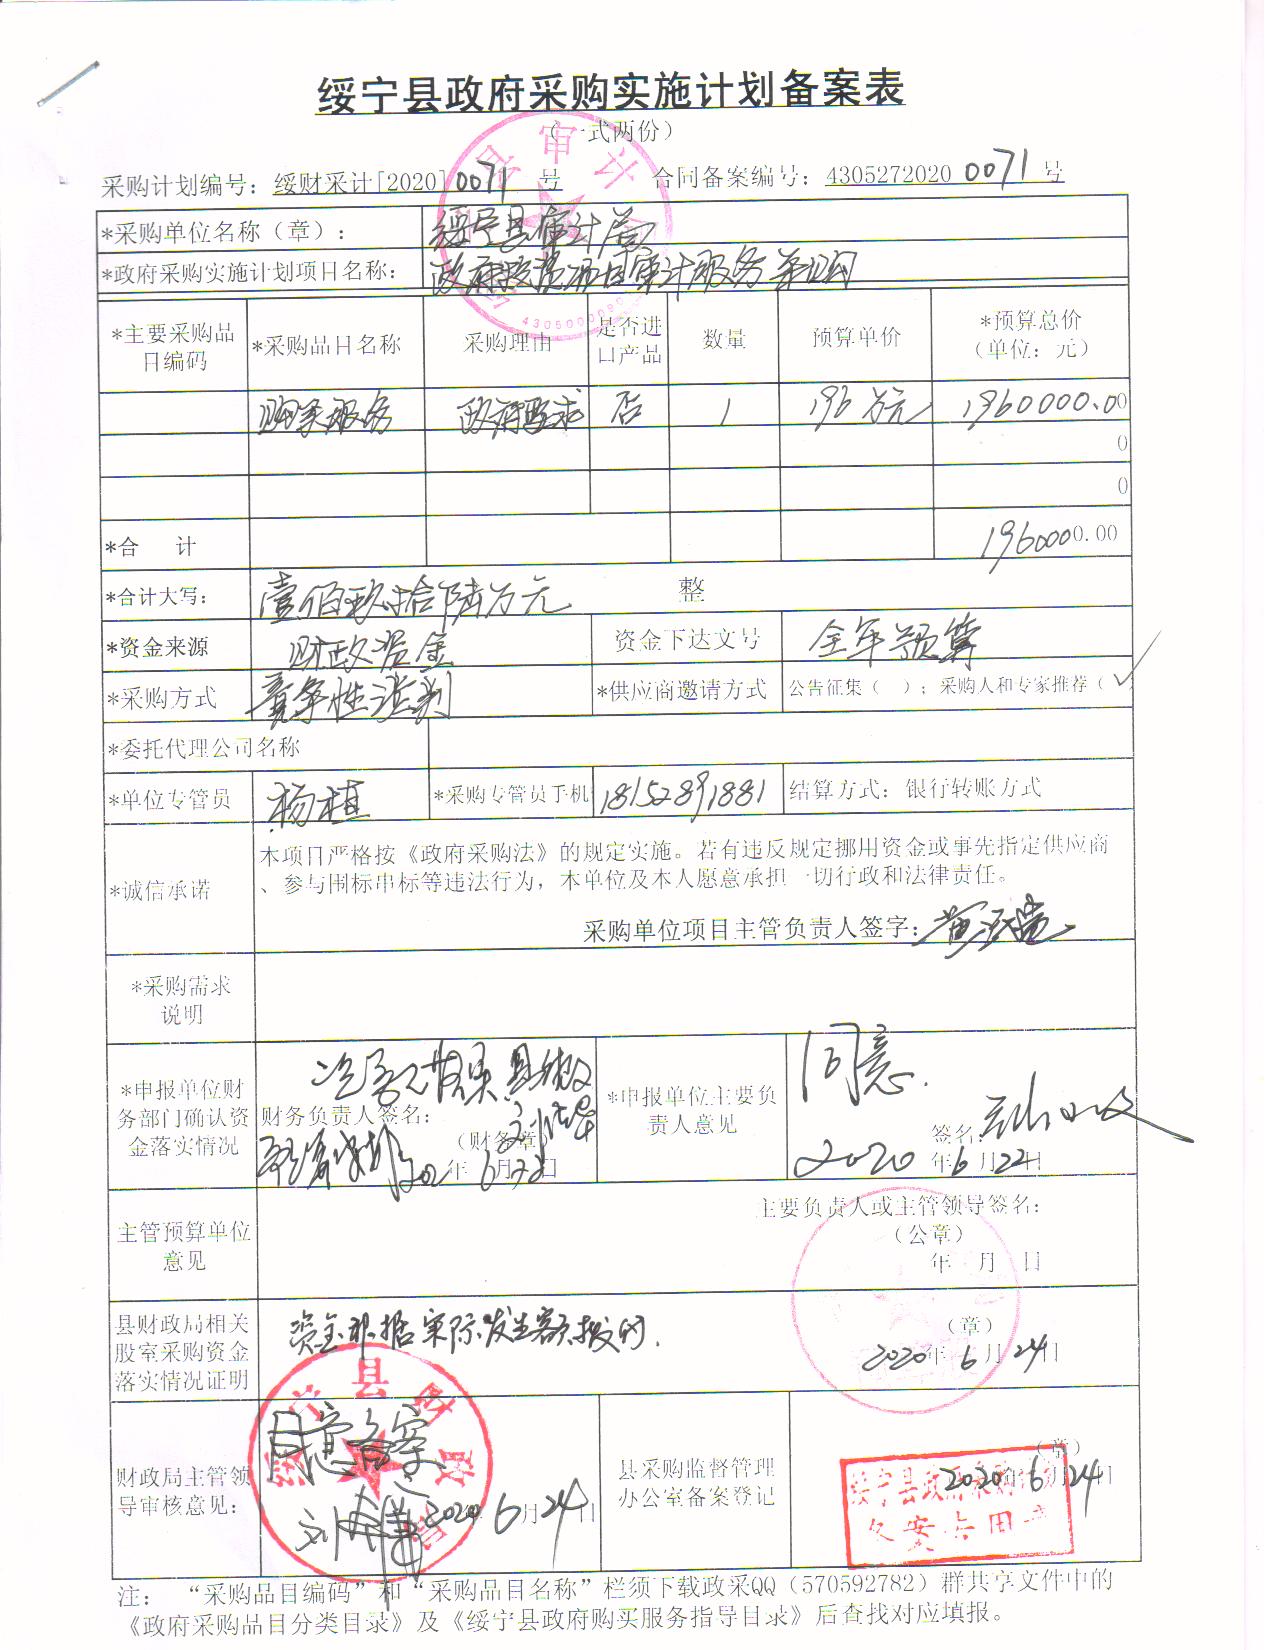 绥宁县政府采购实施计划备案表
（一式两份）
采购计划编号：绥财采计[2020]0071号 合同备案编号：4305272020 0071号
*采购单位名称（章）： 绥宁县审计局
*政府采购实施计划项目名称： 政府投资项目审计服务采购
*主要采购品目编码 *采购品目名称 采购理由 是否进口产品 数量 预算单价 *预算总价（单位：元）
购买服务 政府要求 否 1 196万元 1960000.00
0
0
*合 计 1960000.00
*合计大写： 壹佰玖拾陆万元 整
*资金来源 财政资金 资金下达文号 全年预算
*采购方式 竞争性谈判 *供应商邀请方式 公告征集（ ）；采购人和专家推荐（√
*委托代理公司名称
*单位专管员 杨植 *采购专管员手机 18152891881 结算方式：银行转账方式
*诚信承诺
本项目严格按《政府采购法》的规定实施。若有违反规定挪用资金或事先指定供应商
、参与围标串标等违法行为，本单位及本人愿意承担一切行政和法律责任。
采购单位项目主管负责人签字：
*采购需求
说明
*申报单位财
务部门确认资
金落实情况
财务负责人签名：
（财务章）
年 6月22日
*申报单位主要负
责人意见
同意.
签名：
2020年6月22日
主管预算单位
意见
主要负责人或主管领导签名：
（公章）
年 月 日
县财政局相关
股室采购资金
落实情况证明
资金根据实际发生额拨付.
（章）
2020年6月24日
财政局主管领
导审核意见：
同意备案
2020 6月24日
县采购监督管理
办公室备案登记
（章）
2020年6月24日
备案专用章
注： “采购品目编码”和“采购品目名称”栏须下载政采QQ（570592782）群共享文件中的
《政府采购品目分类目录》及《绥宁县政府购买服务指导目录》后查找对应填报。